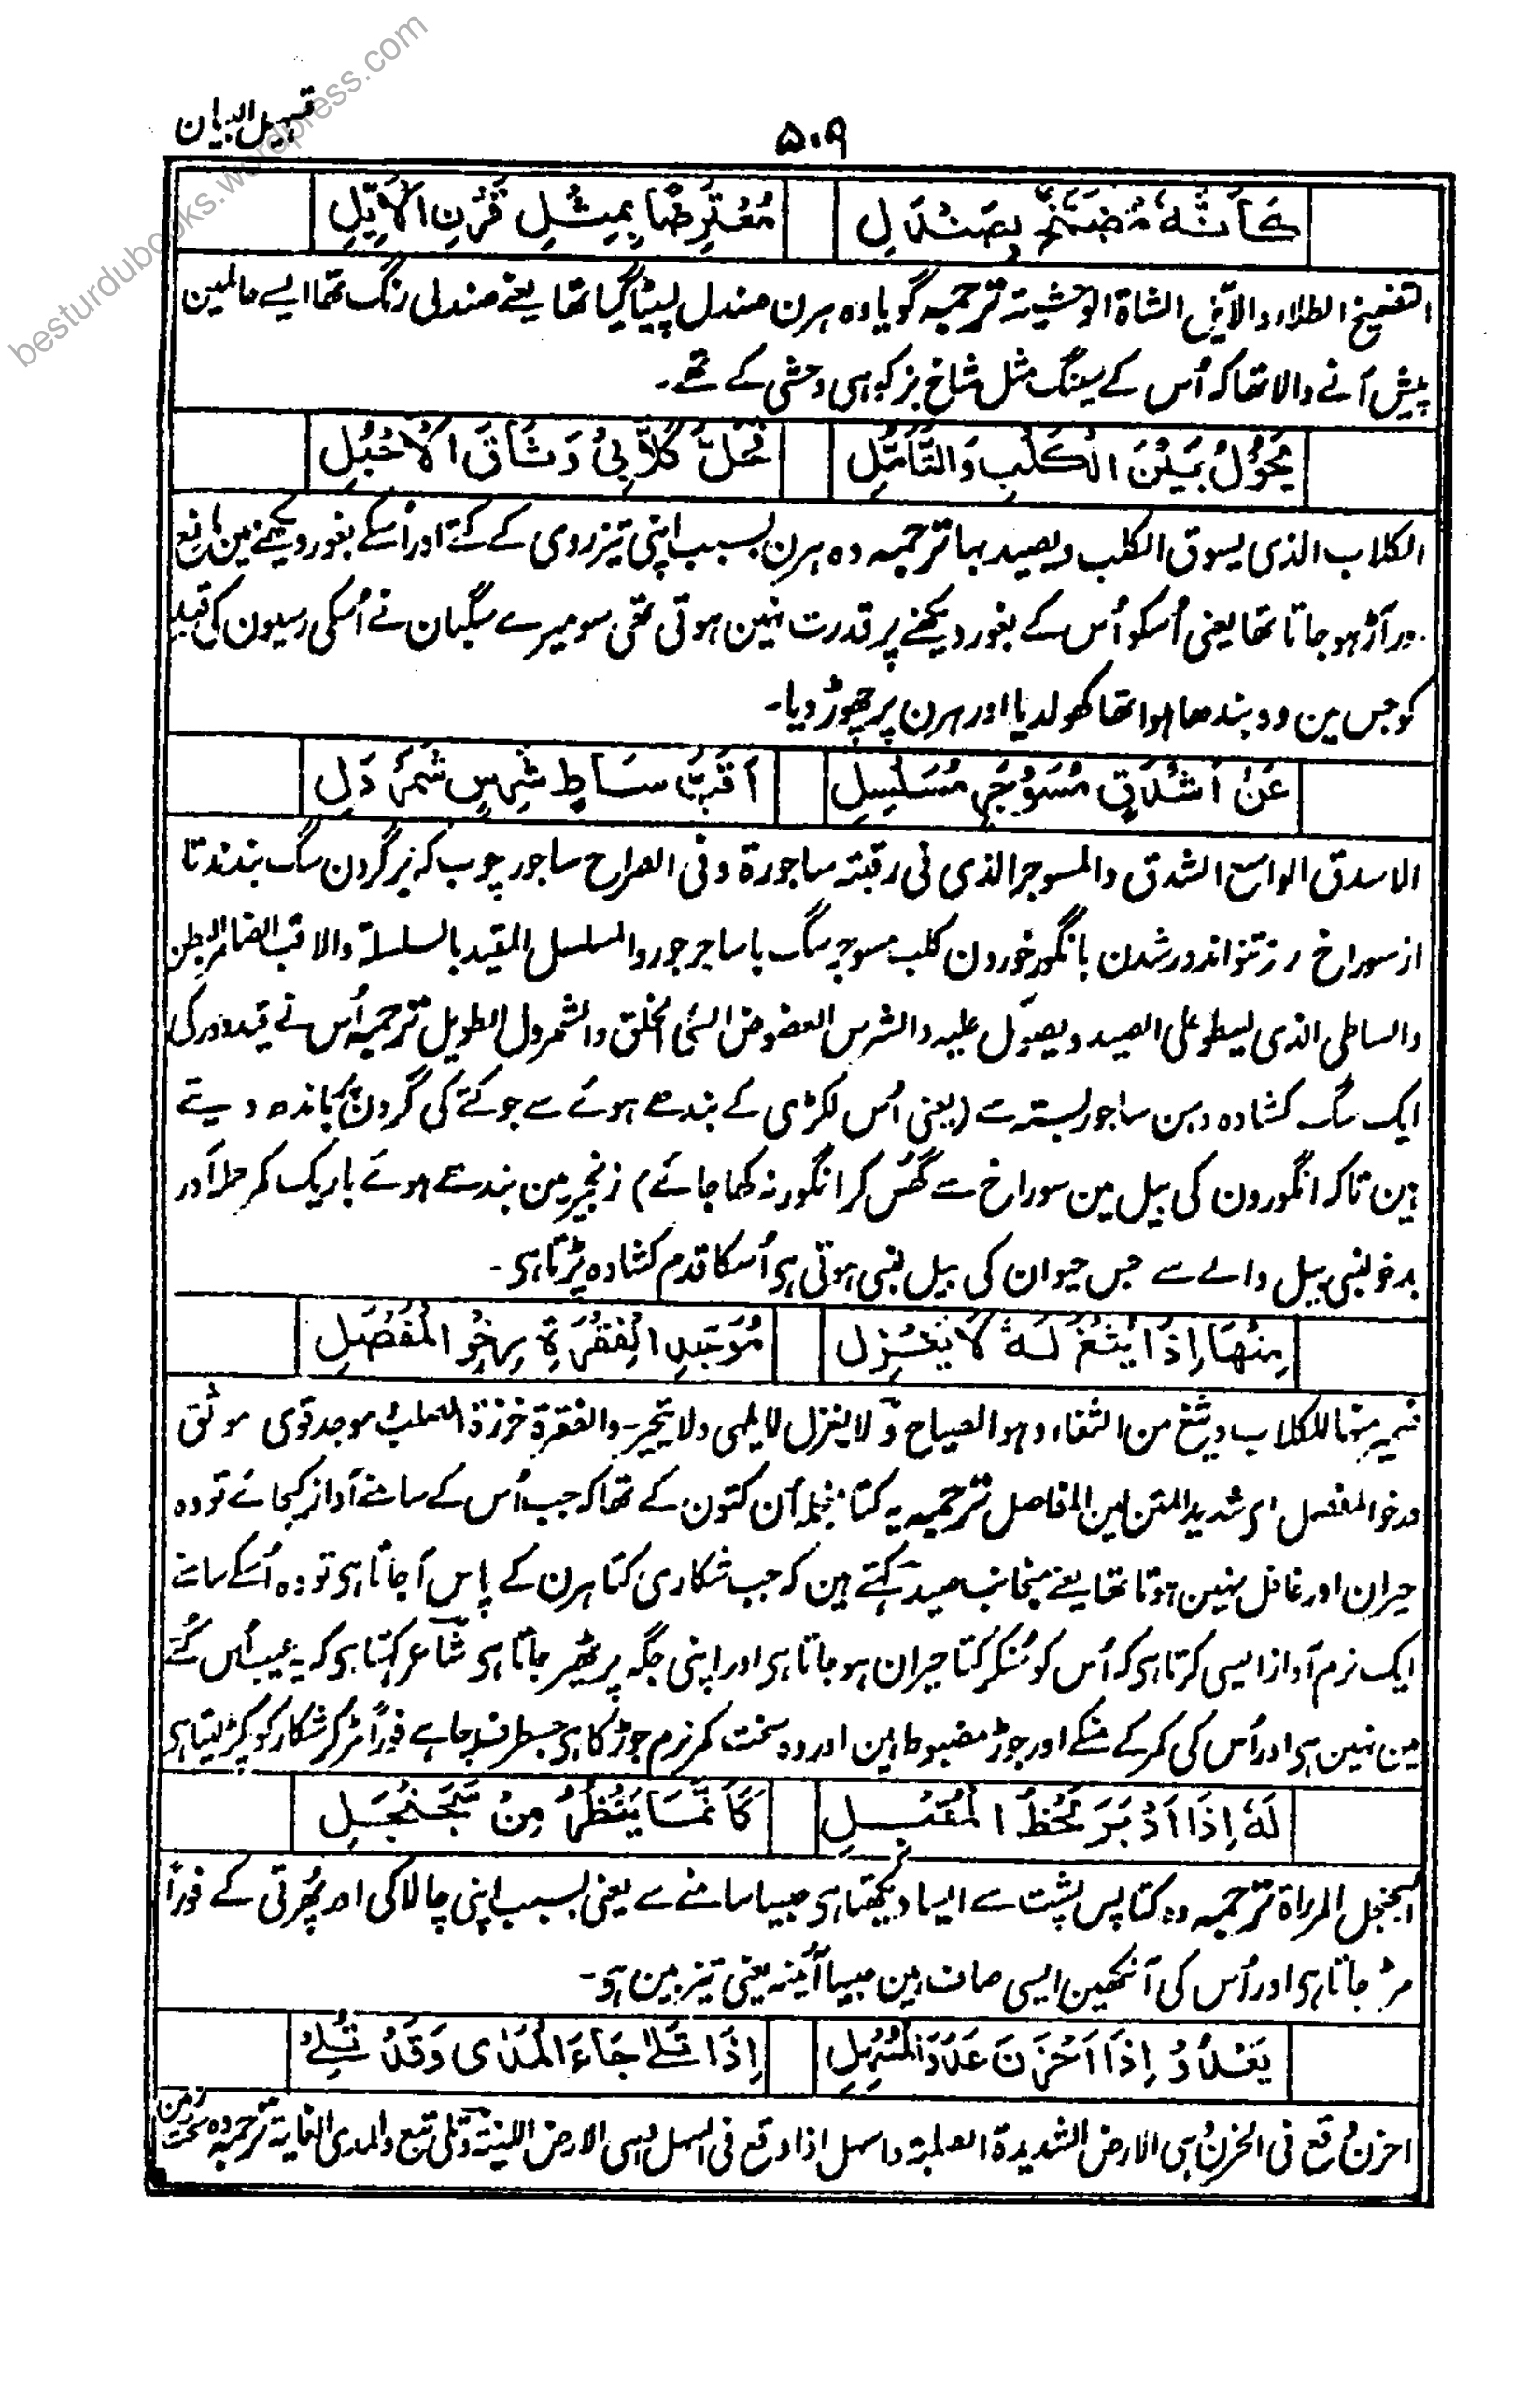 تسہیل البیان
۵۰۹
كَاَنَّهٗ مُضَمَّخٌ بِصَنْدَلِ مُعْتَرِضًا بِمِثْلِ قَرْنِ الْاَيِّلِ
التضمیخ الطلاء والایل الشاۃ الوحشیۃ ترجمہ گویا وہ ہرن صندل لپیٹا گیا تھا یعنے صندلی رنگ تھا ایسے حالمین
پیش آنے والا تھا کہ اُس کے سینگ مثل شاخ بز کوہی وحشی کے تھے۔
يَحُوْلُ بَيْنَ الْكَلْبِ وَالتَّأَمُّلِ فَحَلَّ كَلَّابِيْ وَثَاقَ الْاَحْبُلِ
الکلاب الذی یسوق الکلب ویصید بہا ترجمہ وہ ہرن بسبب اپنی تیزروی کے کتے اور اُسکے بغور دیکھنے مین مانع
ور آڑ ہو جاتا تھا یعنی اُسکو اُس کے بغور دیکھنے پر قدرت نہین ہوتی تھی سو میرے سگبان نے اُسکی رسیون کی قید
کو جس مین وہ بندھا ہوا تھا کھولدیا اور ہرن پر چھوڑ دیا۔
عَنْ اَشْدَقٍ مُسَوْجَرٍ مُسَلْسَلِ اَقَبَّ سَاطٍ شَرِسٍ شَمَرْدَلِ
الاسدق الواسع الشدق والمسوجر الذی فی رقبتہ ساجورۃ وفی الصراح ساجور چوب کہ بر گردن سگ بندند تا
از سوراخ رز نتواند در شدن بانگور خوردن کلب مسوجر سگ با ساجور والمسلسل المقید بالسلسلۃ والاقب الضامر البطن
والساطی الذی یسطو علی الصید ویصول علیہ والشرس العضوض السیٔ الخلق والشمردل الطویل ترجمہ اُس نے قید دور کی
ایک سگ کشادہ دہن ساجور بستہ سے (یعنی اُس لکڑی کے بندھے ہوئے سے جو کتے کی گردن مین باندھ دیتے
ہین تاکہ انگورون کی بیل مین سوراخ سے گھُس کر انگور نہ کھا جائے) زنجیر مین بندھے ہوئے باریک کمر حملہ آور
بدخو لنبی بیل والے سے جس حیوان کی بیل لنبی ہوتی ہی اُسکا قدم کشادہ پڑتا ہی۔
مِنْهَا اِذَا يُثْغَ لَهٗ لَا يَغْزَلِ مُوَجَّدِ الْفِقْرَةِ رِخْوِ الْمَفْصَلِ
ضمیر منہا للکلاب ویثغ من الثغاء وہو الصیاح ولا یغزل لا یلہی ولا یتحیر۔ والفقرۃ خرزۃ الصلب موجد قوی موثق
ورخو المفصل ای شدید المتن لین المفاصل ترجمہ یہ کتا منجملہ اُن کتون کے تھا کہ جب اُس کے سامنے آواز کیجائے تو وہ
حیران اور غافل نہین ہوتا تھا یعنے منجانب صید کہتے ہین کہ جب شکاری کتا ہرن کے پاس آ جاتا ہی تو وہ اُسکے سامنے
ایک نرم آواز ایسی کرتا ہی کہ اُس کو سُنکر کتا حیران ہو جاتا ہی اور اپنی جگہ پر ٹھیر جاتا ہی شاعر کہتا ہی کہ یہ عیب اُس کتے
مین نہین ہی اور اُس کی کمر کے منکے اور جوڑ مضبوط ہین اور وہ سخت کمر نرم جوڑ کا ہی جسطرف چاہے فوراً مڑ کر شکار کو پکڑ لیتا ہی
لَهٗ اِذَا اَدْبَرَ لَحْظُ الْمُقْبِلِ كَاَنَّمَا يَنْظُرُ مِنْ سَجَنْجَلِ
السجنجل المرآۃ ترجمہ وہ کتا پس پشت سے ایسا دیکھتا ہی جیسا سامنے سے یعنی بسبب اپنی چالاکی اور پھُرتی کے فوراً
مڑ جاتا ہی اور اُس کی آنکھین ایسی صاف ہین جیسا آئینہ یعنی تیز بین ہو۔
يَعْدُوْ اِذَا اَحْزَنَ عَدْوَ الْمُسْهِلِ اِذَا تَلٰى جَاءَ الْمَدٰى وَقَدْ تُلِيْ
احزن وقع فی الحزن وہی الارض الشدیدۃ الصلبۃ واسہل اذا وقع فی السہل وہی الارض اللینۃ وتلی تبع والمدی الغایۃ ترجمہ وہ سخت زمین
besturdubooks.wordpress.com